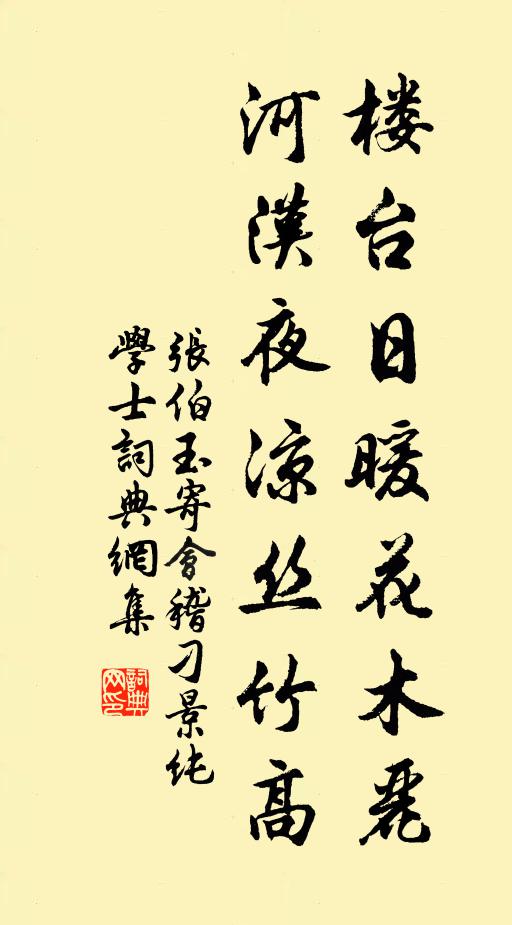 楼台日暖花木麗
河漢夜涼丝竹高
張伯玉寄會稽刁景纯
學士詞典網集
詞典网印